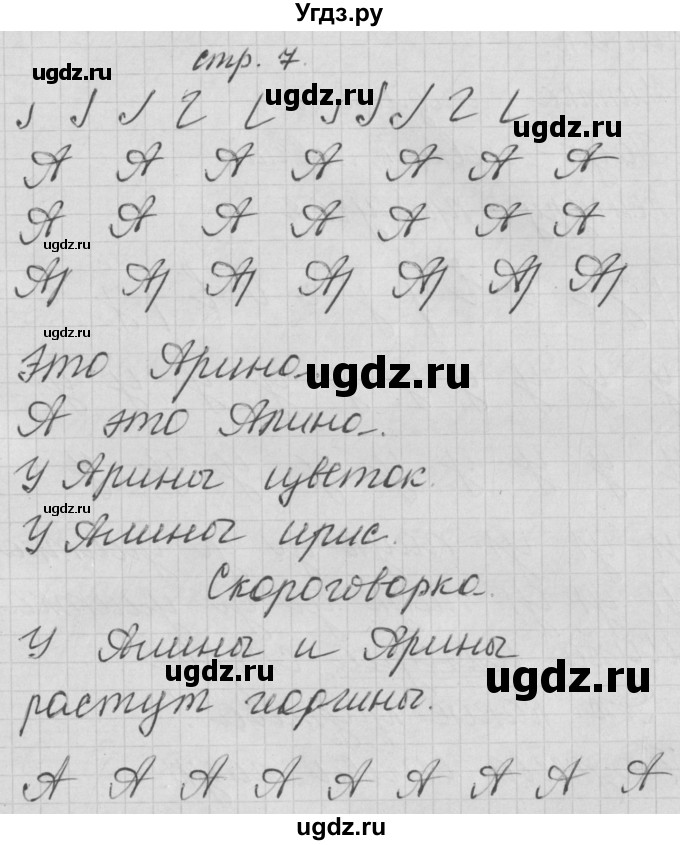 Угдз.ру
стр. 7.
ugdz.ru
ugdz.ru
ugdz.ru
А А А А А А А
А А А А А А А
ugdz.ru
Ар Ар Ар Ар Ар Ар Ар
ugdz.ru
Это Арина.
ugdz.ru
А это Алина.
У Арины цветок.
ugdz.ru
У Алины ирис.
Скороговорка.
У Алины и Арины
ugdz.ru
ugdz.ru
растут георгины.
А А А А А А А А А
ugdz.ru